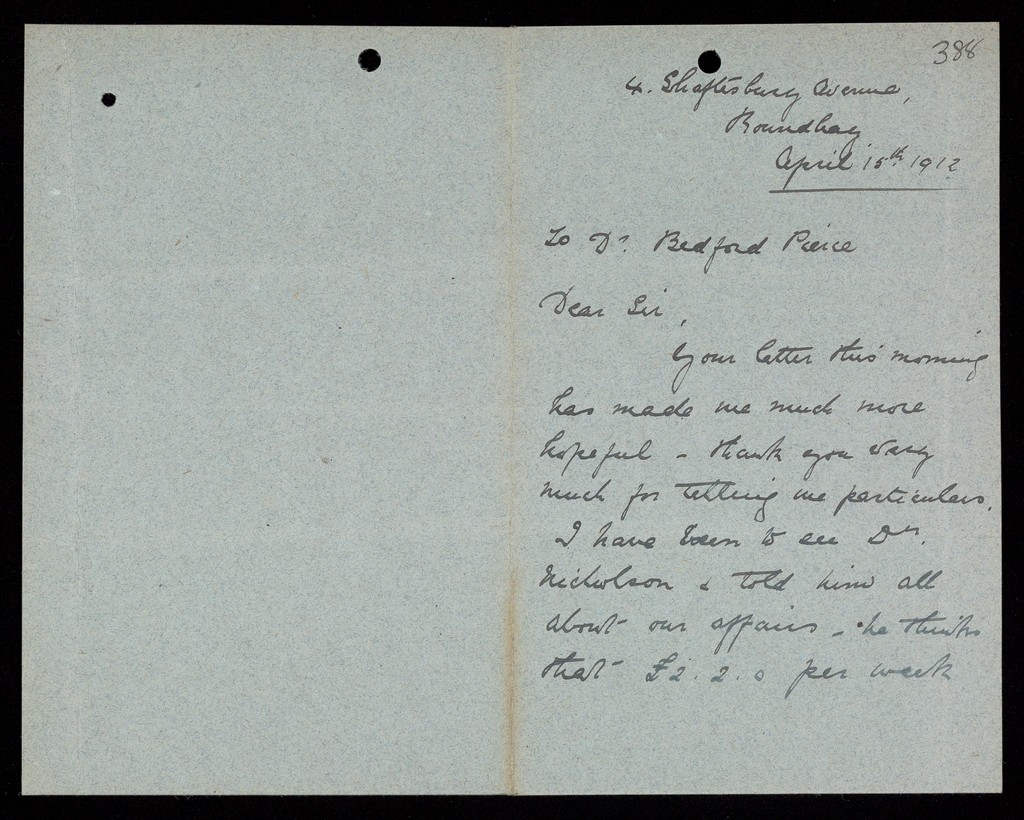 388
4. Shaftesbury Avenue,
Roundhay
April 15th 1912
To Dr. Bedford Pierce
Dear Sir,
Your letter this morning
has made me much more
hopeful - thank you very
much for telling me particulars.
I have been to see Dr.
Nicholson & told him all
about our affairs - he thinks
that £2. 2. 0 per week